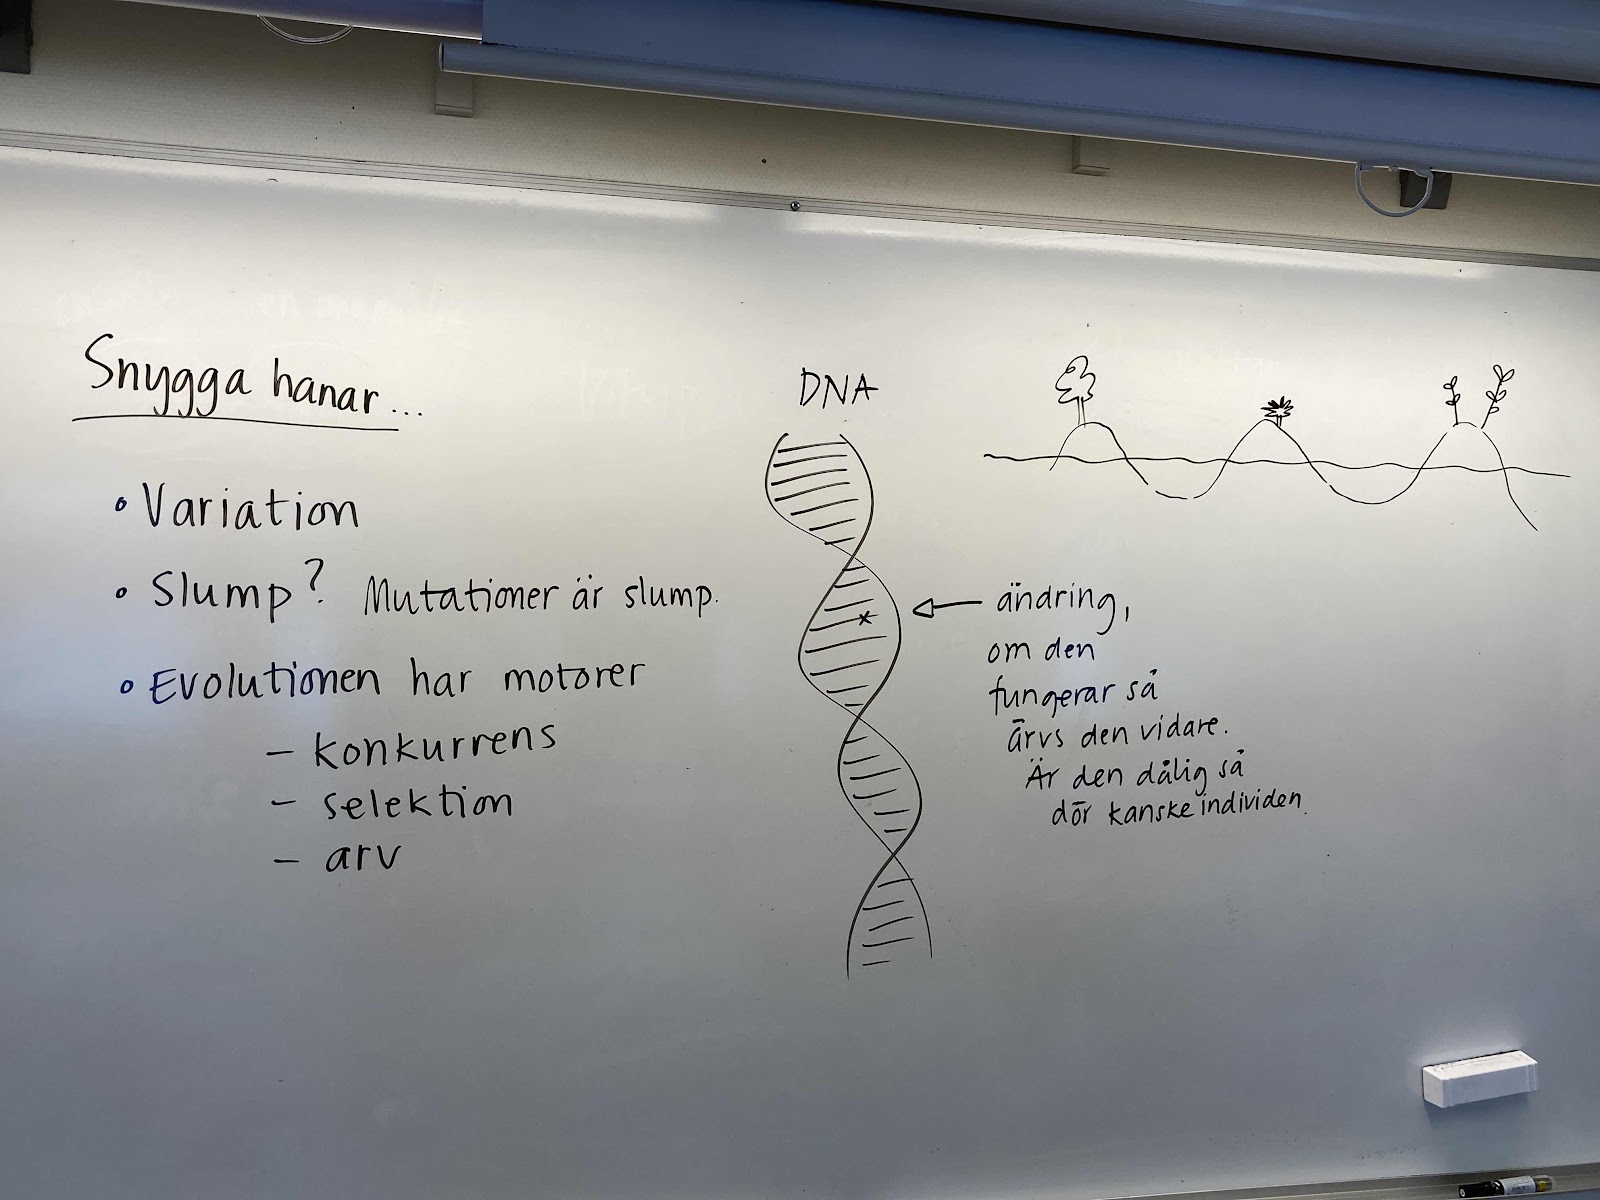 Snygga hanar...
• Variation
• Slump? Mutationer är slump.
• Evolutionen har motorer
– konkurrens
– selektion
– arv
DNA
ändring,
om den
fungerar så
ärvs den vidare.
Är den dålig så
dör kanske individen.